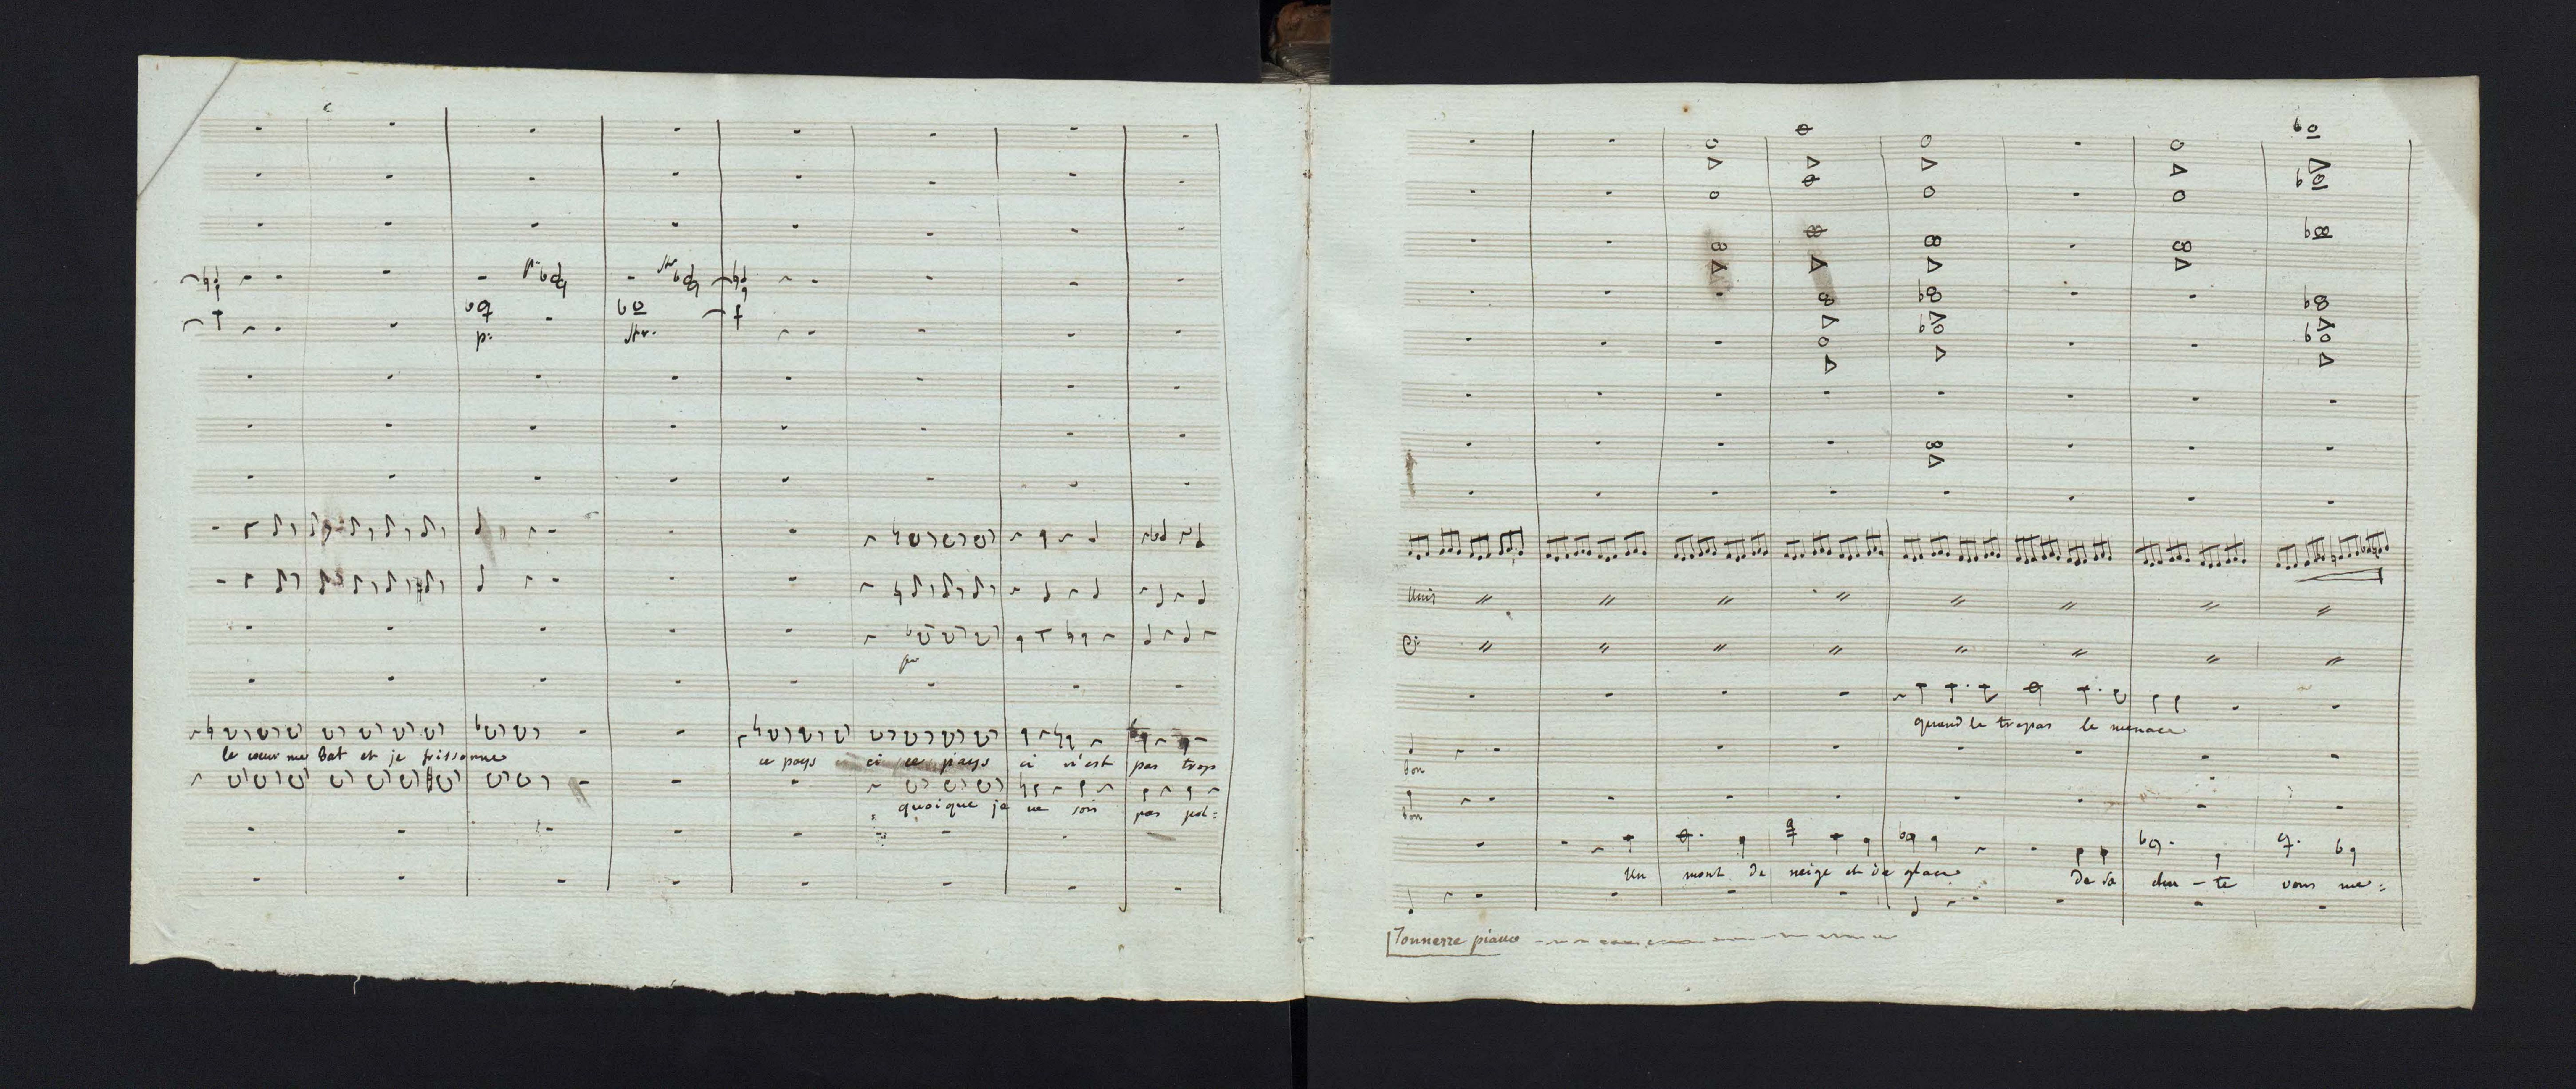 p:
le cœur me bat et je frissonne
ce pays ci ce pays ci n'est pas trop
quoique je ne sois pas pol=
unis
quand le trepas le menace
bon
bon
un mont de neige et de glace de sa chu-te vous me=
Tonnerre piano